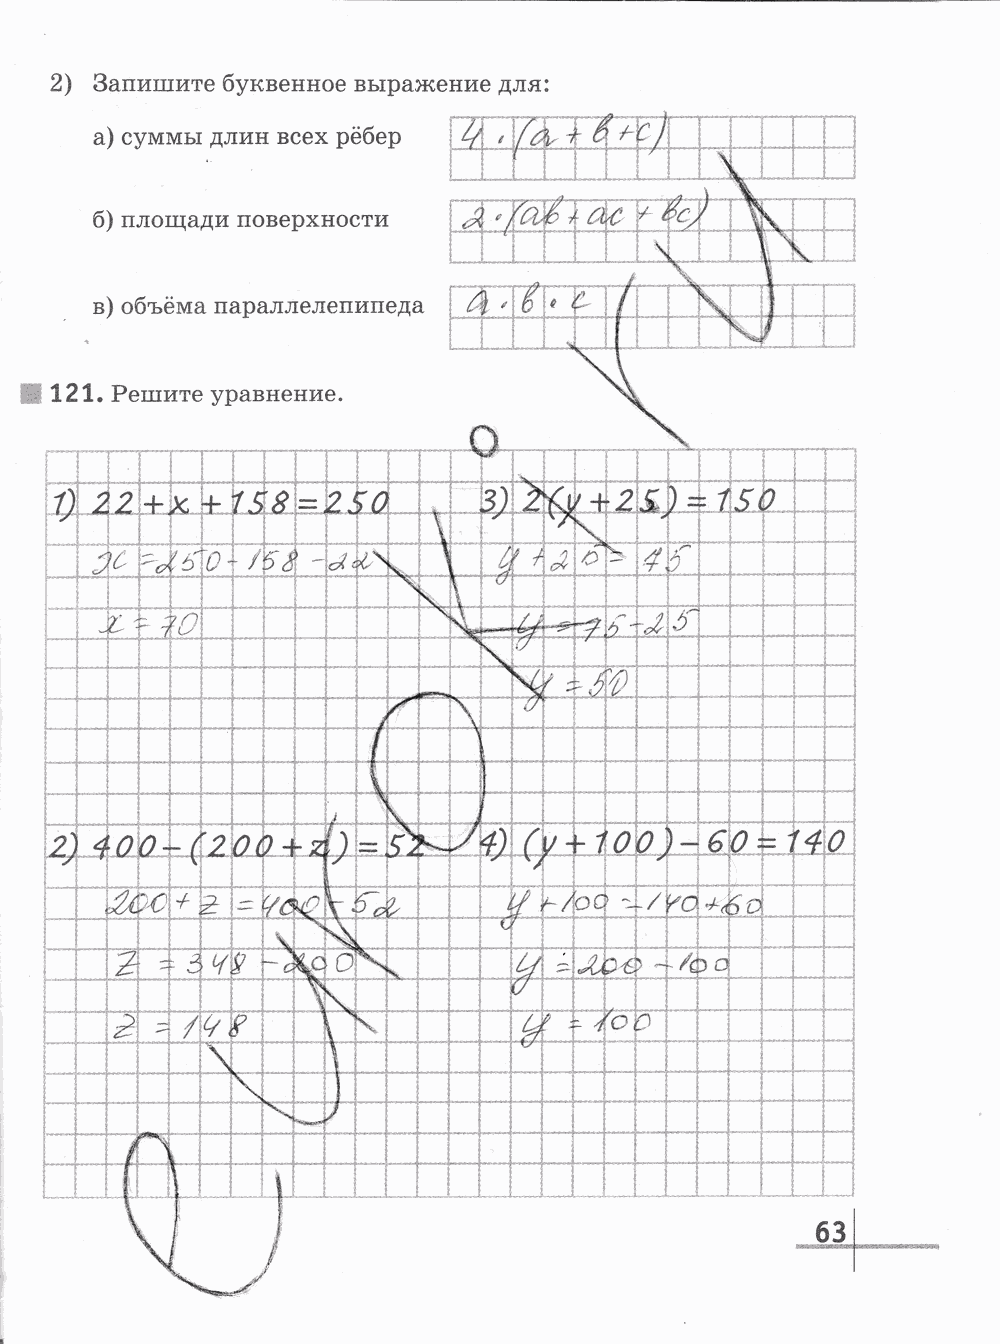 2) Запишите буквенное выражение для:
а) суммы длин всех рёбер 4 · (a + b + c)
б) площади поверхности 2 · (ab + ac + bc)
в) объёма параллелепипеда a · b · c
121. Решите уравнение.
1) 22 + x + 158 = 250
x = 250 - 158 - 22
x = 70
3) 2(y + 25) = 150
y + 25 = 75
y = 75 - 25
y = 50
2) 400 - (200 + z) = 52
200 + z = 400 - 52
z = 348 - 200
z = 148
4) (y + 100) - 60 = 140
y + 100 = 140 + 60
y = 200 - 100
y = 100
63